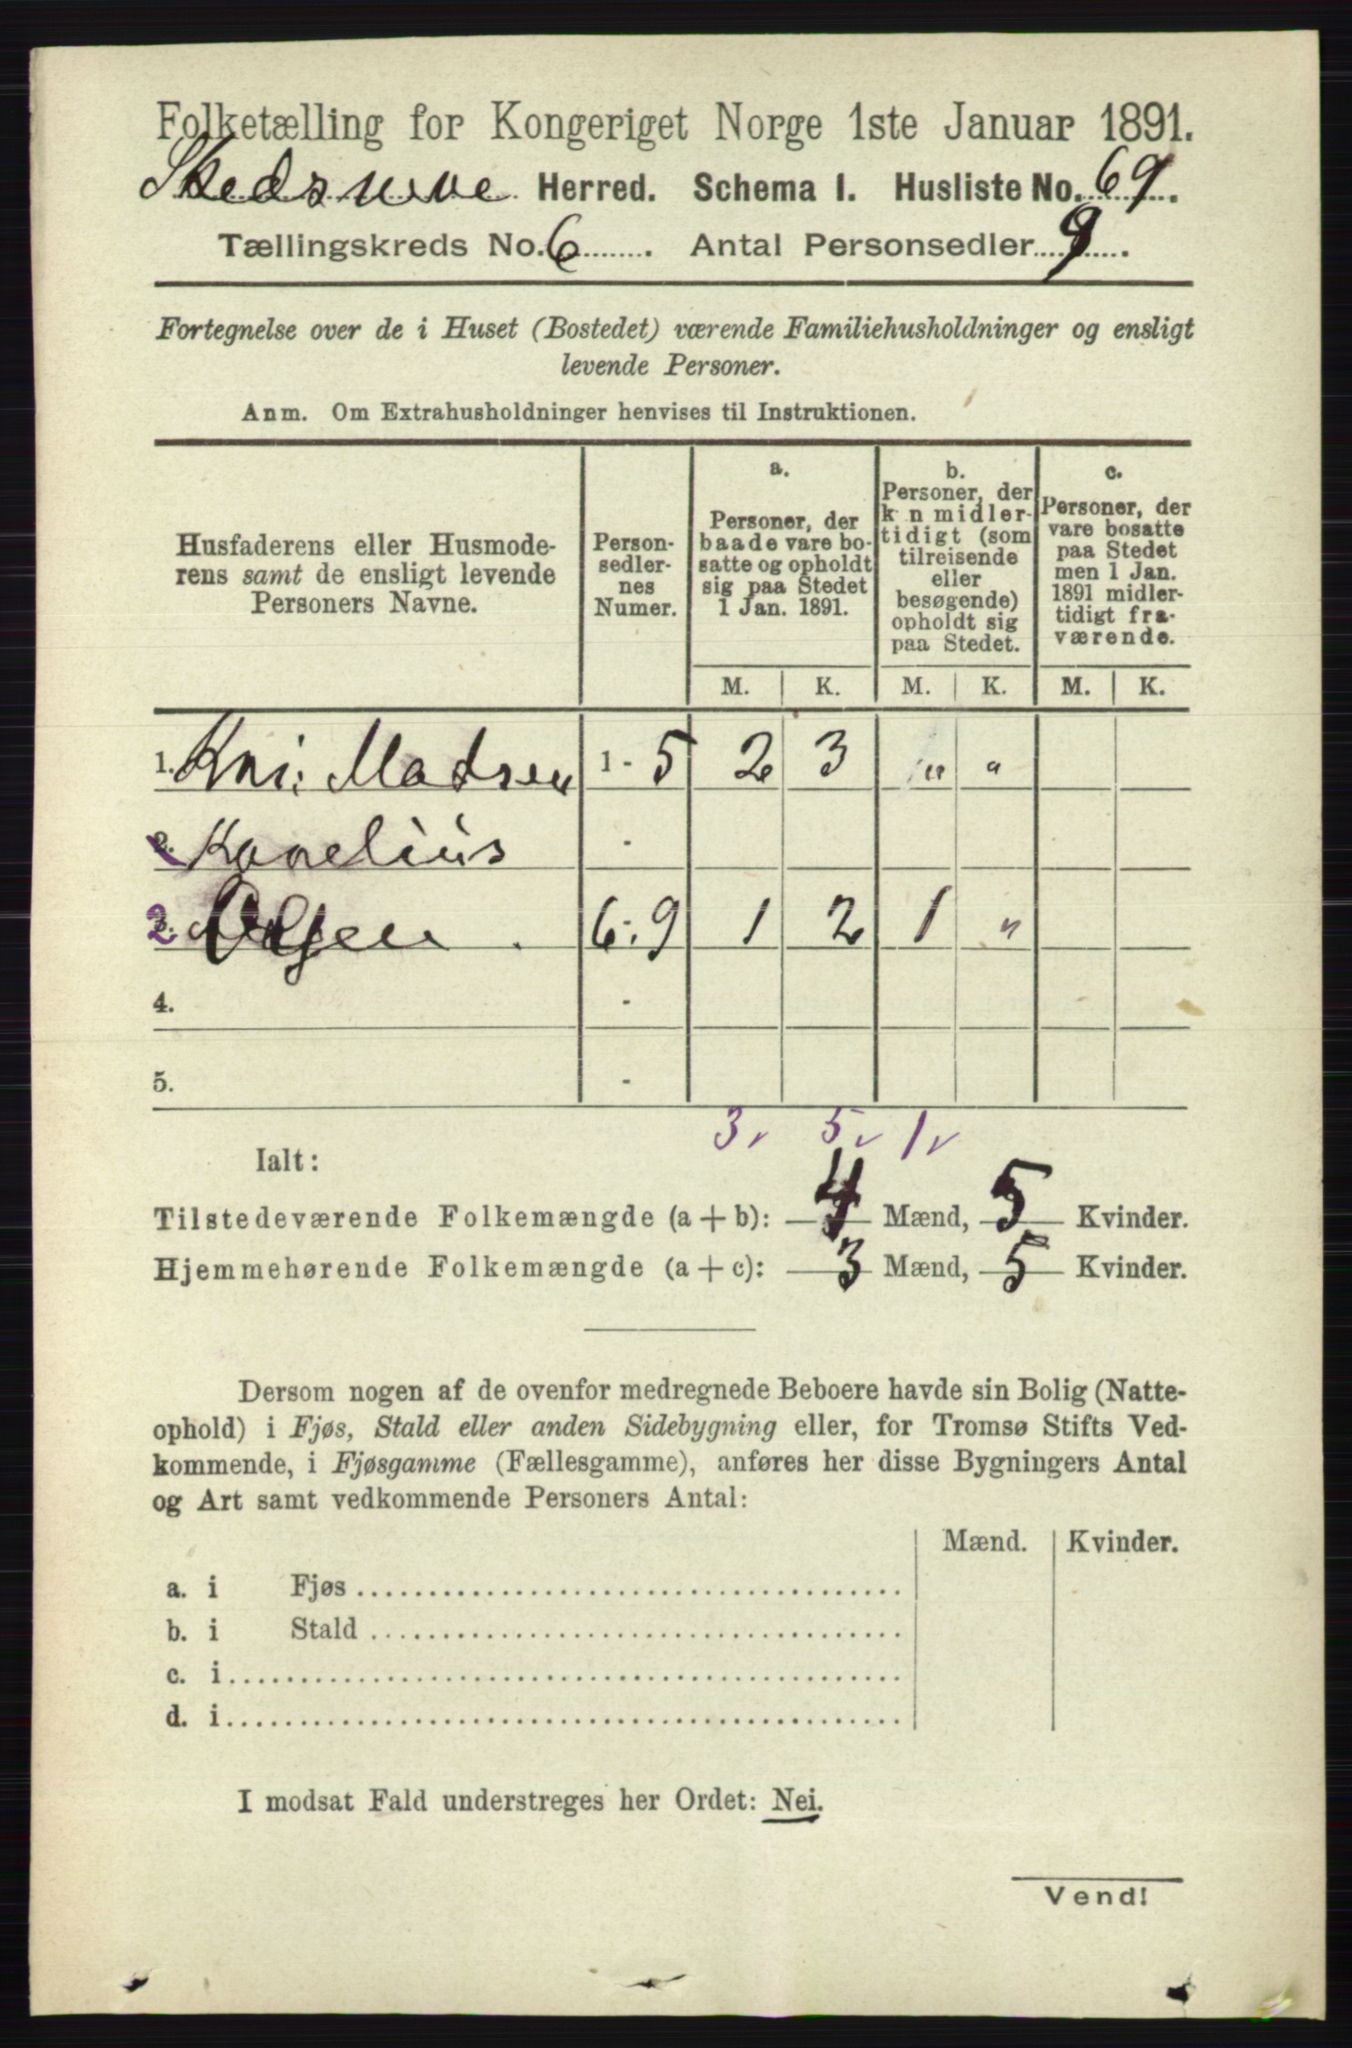 Folketælling for Kongeriget Norge 1ste Januar 1891.
Skedsmoe Herred. Schema I. Husliste No. 69.
Tællingskreds No. 6. Antal Personsedler 9.
Fortegnelse over de i Huset (Bostedet) værende Familiehusholdninger og ensligt
levende Personer.
Anm. Om Extrahusholdninger henvises til Instruktionen.
Husfaderens eller Husmode-
rens samt de ensligt levende
Personers Navne.
Person-
sedler-
nes
Numer.
a.
Personer, der
baade vare bo-
satte og opholdt
sig paa Stedet
1 Jan. 1891.
b.
Personer, der
kun midler-
tidigt (som
tilreisende
eller
besøgende)
opholdt sig
paa Stedet.
c.
Personer, der
vare bosatte
paa Stedet
men 1 Jan.
1891 midler-
tidigt fra-
værende.
M. K. M. K. M. K.
1. Kri: Madsen 1 - 5 2 3 " "
2. Kornelius -
2 3. Olsen . 6 - 9 1 2 1 "
4. -
5. -
3 5 1
Ialt:
Tilstedeværende Folkemængde (a + b): 4 Mænd, 5 Kvinder.
Hjemmehørende Folkemængde (a + c): 3 Mænd, 5 Kvinder.
Dersom nogen af de ovenfor medregnede Beboere havde sin Bolig (Natte-
ophold) i Fjøs, Stald eller anden Sidebygning eller, for Tromsø Stifts Ved-
kommende, i Fjøsgamme (Fællesgamme), anføres her disse Bygningers Antal
og Art samt vedkommende Personers Antal:
Mænd. Kvinder.
a. i Fjøs
b. i Stald
c. i
d. i
I modsat Fald understreges her Ordet: Nei.
Vend!